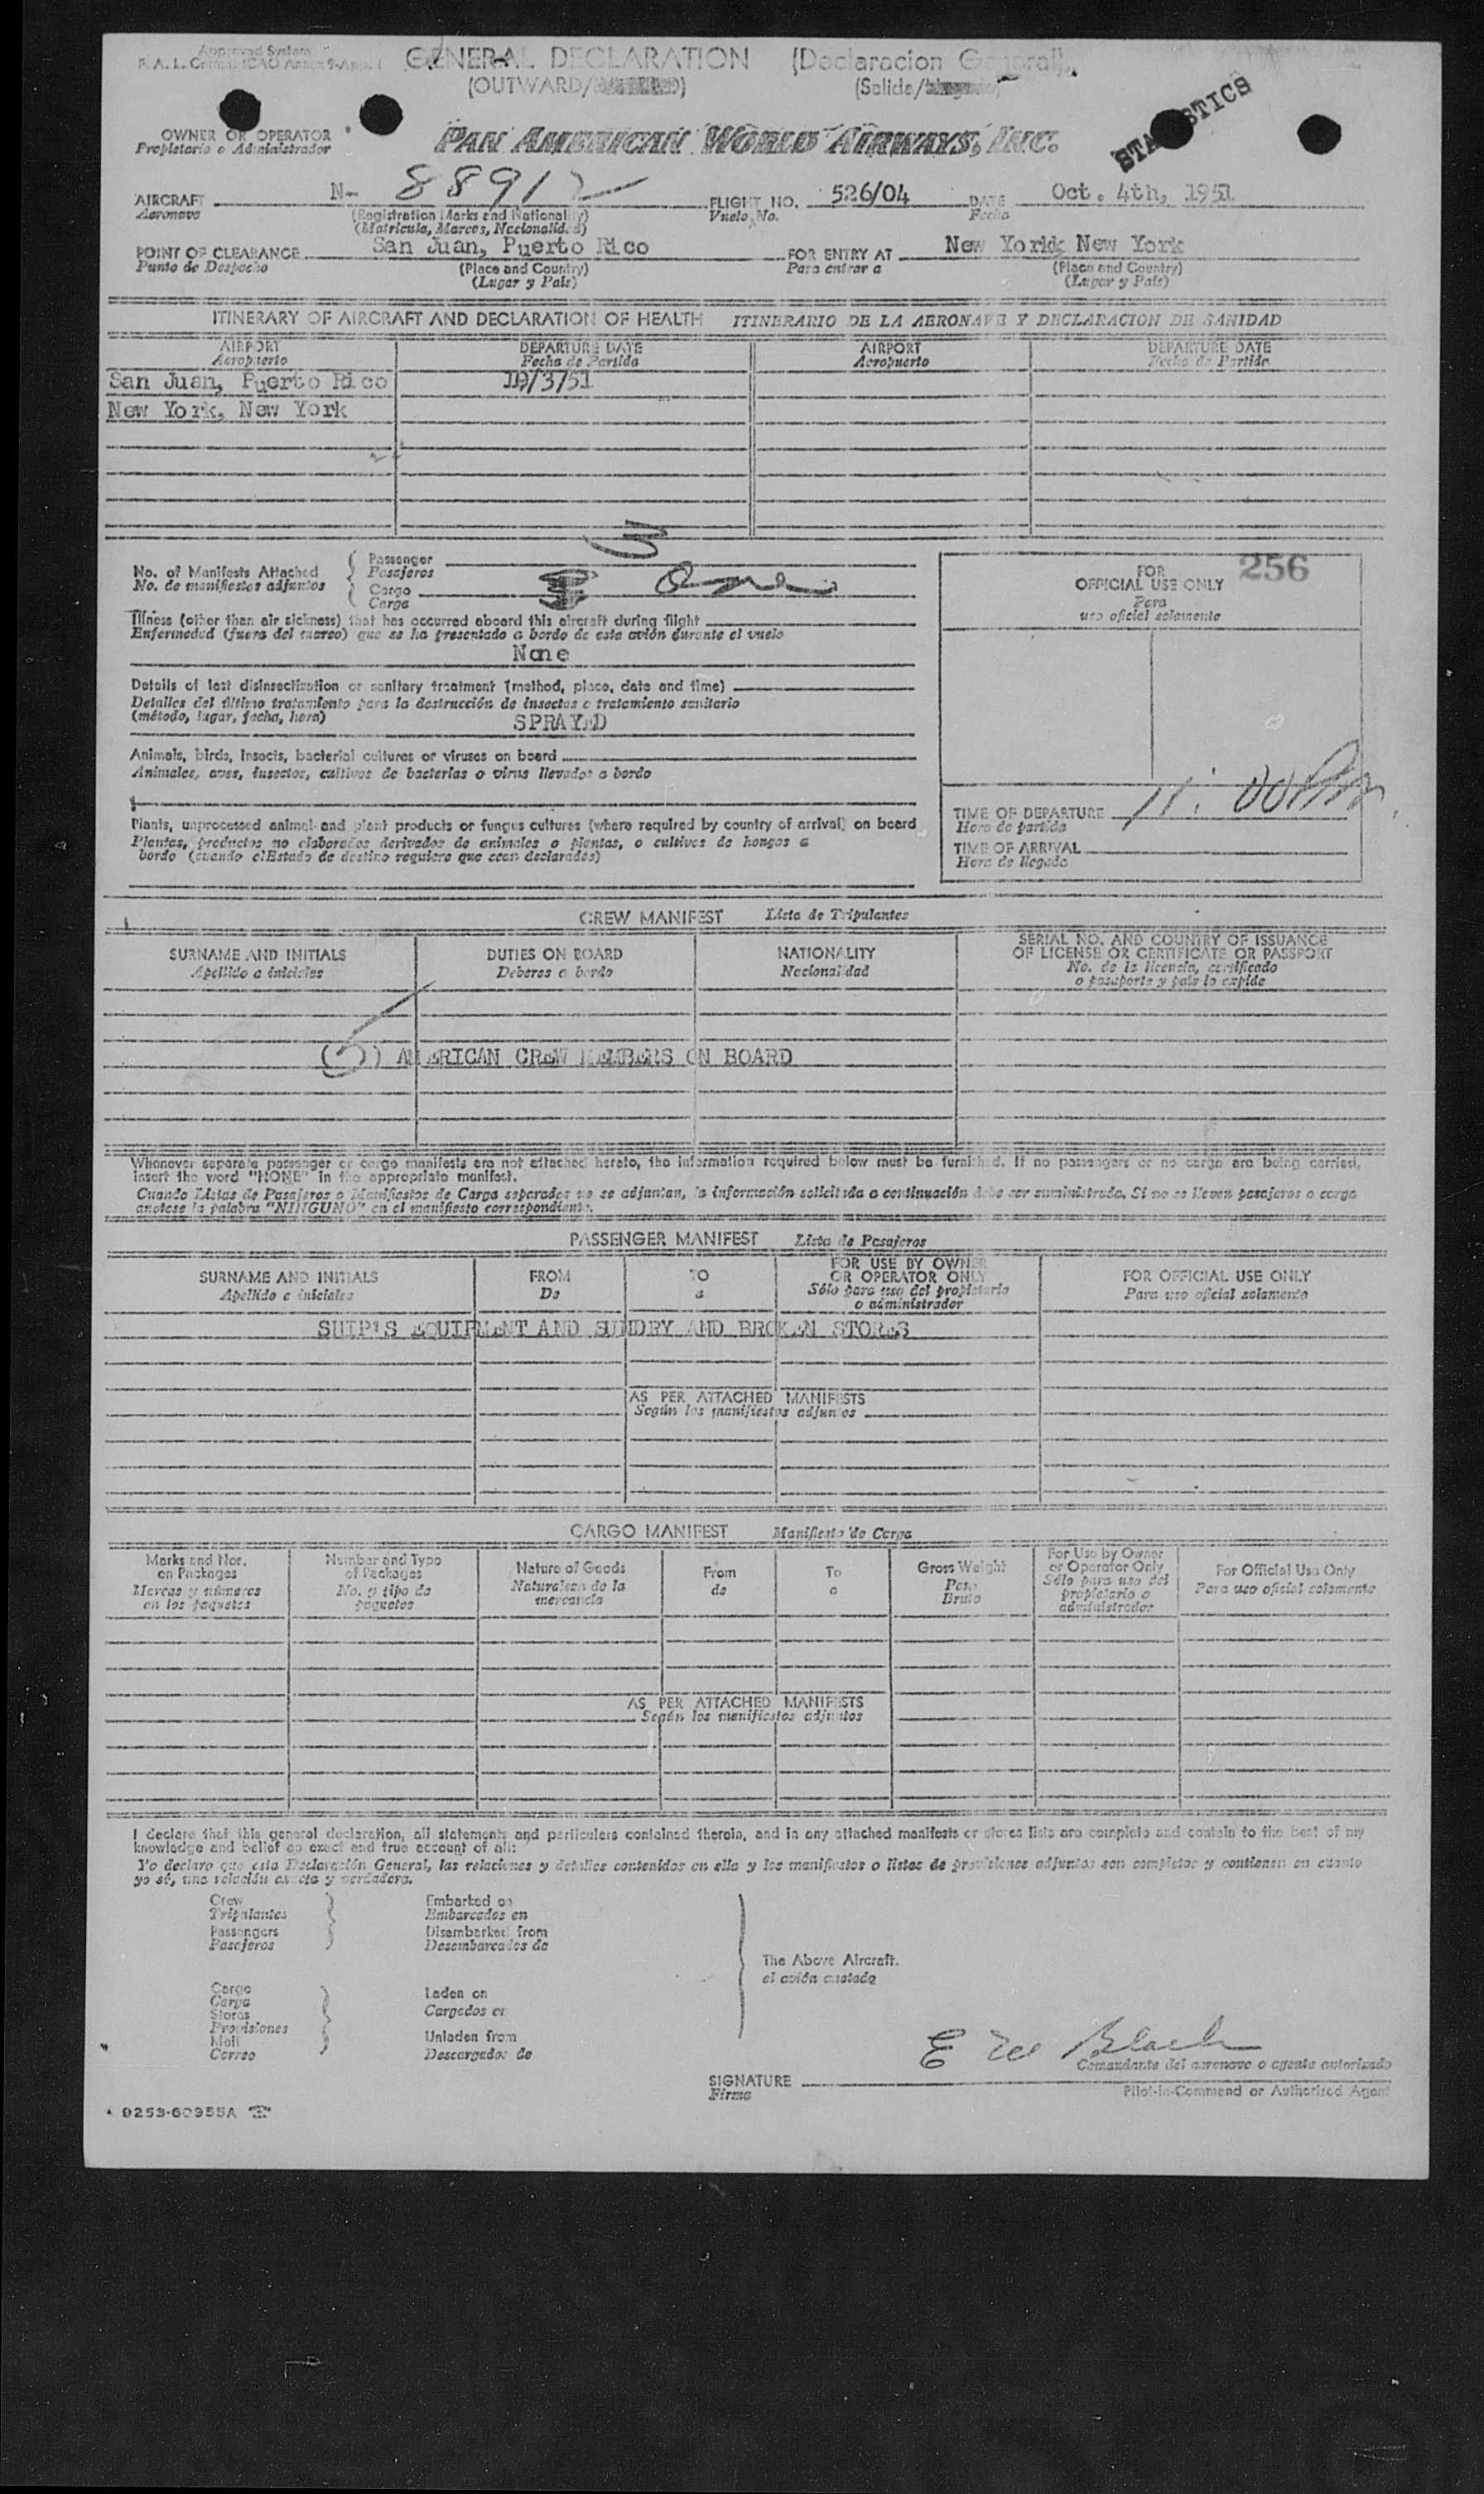 Approved System
F. A. L. Comm. ICAO Annex 9-App. 1
GENERAL DECLARATION (Declaracion General)
(OUTWARD/ (Salida/
STATISTICS
OWNER OR OPERATOR
Propietario o Administrador
PAN AMERICAN WORLD AIRWAYS, INC.
AIRCRAFT N- 88912 FLIGHT NO. 526/04 DATE Oct. 4th, 1951
Aeronave (Registration Marks and Nationality) Vuelo No. Fecha
(Matricula, Marcas, Nacionalidad)
POINT OF CLEARANCE San Juan, Puerto Rico FOR ENTRY AT New York, New York
Punto de Despacho (Place and Country) Para entrar a (Place and Country)
(Lugar y Pais) (Lugar y Pais)
ITINERARY OF AIRCRAFT AND DECLARATION OF HEALTH ITINERARIO DE LA AERONAVE Y DECLARACION DE SANIDAD
AIRPORT DEPARTURE DATE AIRPORT DEPARTURE DATE
Aeropuerto Fecha de Partida Aeropuerto Fecha de Partida
San Juan, Puerto Rico 10/3/51
New York, New York
No. of Manifests Attached Passenger 3
No. de manifiestos adjuntos Pasajeros
Cargo
Carga
FOR 256
OFFICIAL USE ONLY
Para
uso oficial solamente
Illness (other than air sickness) that has occurred aboard this aircraft during flight
Enfermedad (fuera del mareo) que se ha presentado a bordo de este avión durante el vuelo
None
Details of last disinsectization or sanitary treatment (method, place, date and time)
Detalles del último tratamiento para la destrucción de insectos o tratamiento sanitario
(método, lugar, fecha, hora) SPRAYED
Animals, birds, insects, bacterial cultures or viruses on board
Animales, aves, insectos, cultivos de bacterias o virus llevados a bordo
Plants, unprocessed animal and plant products or fungus cultures (where required by country of arrival) on board
Plantas, productos no elaborados derivados de animales o plantas, o cultivos de hongos a
bordo (cuando el Estado de destino requiere que sean declarados)
TIME OF DEPARTURE 11:00 PM
Hora de partida
TIME OF ARRIVAL
Hora de llegada
CREW MANIFEST Lista de Tripulantes
SURNAME AND INITIALS DUTIES ON BOARD NATIONALITY SERIAL NO. AND COUNTRY OF ISSUANCE
OF LICENSE OR CERTIFICATE OR PASSPORT
Apellido e iniciales Deberes a bordo Nacionalidad No. de la licencia, certificado
o pasaporte y pais lo expide
(5) AMERICAN CREW MEMBERS ON BOARD
Whenever separate passenger or cargo manifests are not attached hereto, the information required below must be furnished. If no passengers or no cargo are being carried,
insert the word "NONE" in the appropriate manifest.
Cuando Listas de Pasajeros o Manifiestos de Carga separados no se adjuntan, la información solicitada a continuación debe ser suministrada. Si no se lleven pasajeros o carga
anotese la palabra "NINGUNO" en el manifiesto correspondiente.
PASSENGER MANIFEST Lista de Pasajeros
SURNAME AND INITIALS FROM TO FOR USE BY OWNER
OR OPERATOR ONLY FOR OFFICIAL USE ONLY
Apellido e iniciales De a Sólo para uso del propietario
o administrador Para uso oficial solamente
SHIP'S EQUIPMENT AND SUNDRY AND BROKEN STORES
AS PER ATTACHED MANIFESTS
Según los manifiestos adjuntos
CARGO MANIFEST Manifiesto de Carga
Marks and Nos.
on Packages
Marcas y números
en los paquetes
Number and Type
of Packages
No. y tipo de
paquetes
Nature of Goods
Naturaleza de la
mercancía
From
de
To
a
Gross Weight
Peso
Bruto
For Use by Owner
or Operator Only
Sólo para uso del
propietario o
administrador
For Official Use Only
Para uso oficial solamente
AS PER ATTACHED MANIFESTS
Según los manifiestos adjuntos
I declare that this general declaration, all statements and particulars contained therein, and in any attached manifests or stores lists are complete and contain to the best of my
knowledge and belief an exact and true account of all:
Yo declaro que esta Declaración General, las relaciones y detalles contenidos en ella y los manifiestos o listas de provisiones adjuntos son completos y contienen en cuanto
yo sé, una relación exacta y verdadera.
Crew Embarked on
Tripulantes Embarcados en
Passengers Disembarked from
Pasajeros Desembarcados de
The Above Aircraft.
el avión anotado
Cargo Laden on
Carga Cargados en
Stores
Provisiones
Mail Unladen from
Correo Descargados de
SIGNATURE
Firma
Comandante del aeronave o agente autorizado
Pilot-in-Command or Authorized Agent
0253-60955A